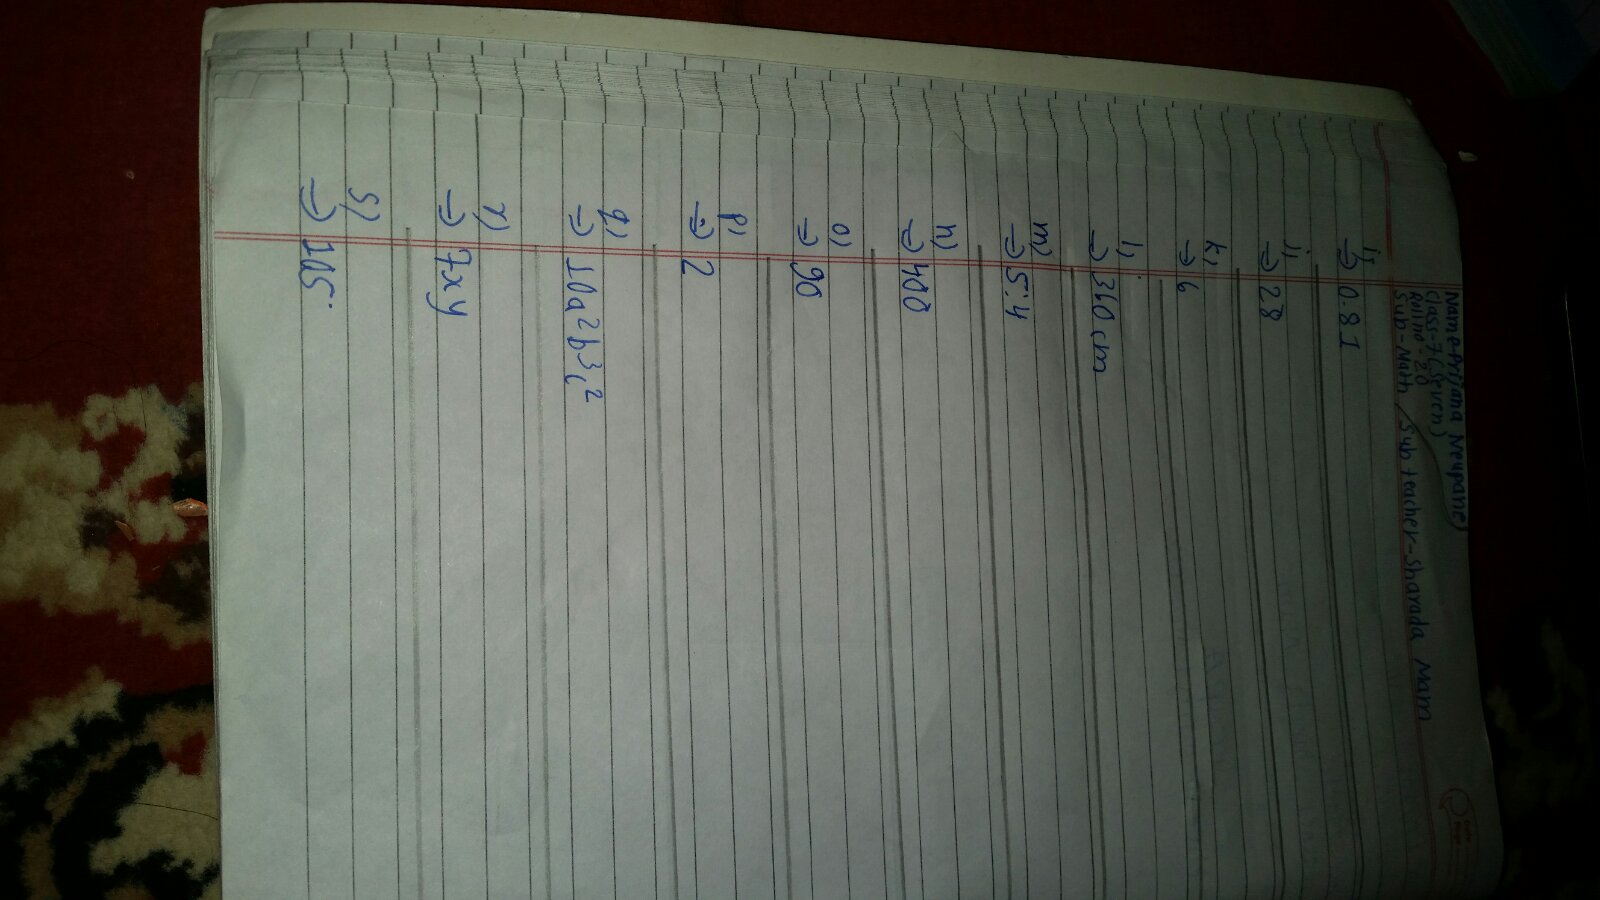 Name-Prijana Neupane
Class-7(Seven)
Roll no-20
Sub-Math Sub teacher-Sharada Mam
i)
⇒ 0.81
j)
⇒ 28
k)
⇒ 6
l)
⇒ 360cm
m)
⇒ 5.4
n)
⇒ 400
o)
⇒ 90
p)
⇒ 2
q)
⇒ 10a2b3c2
r)
⇒ 7xy
s)
⇒ 105°